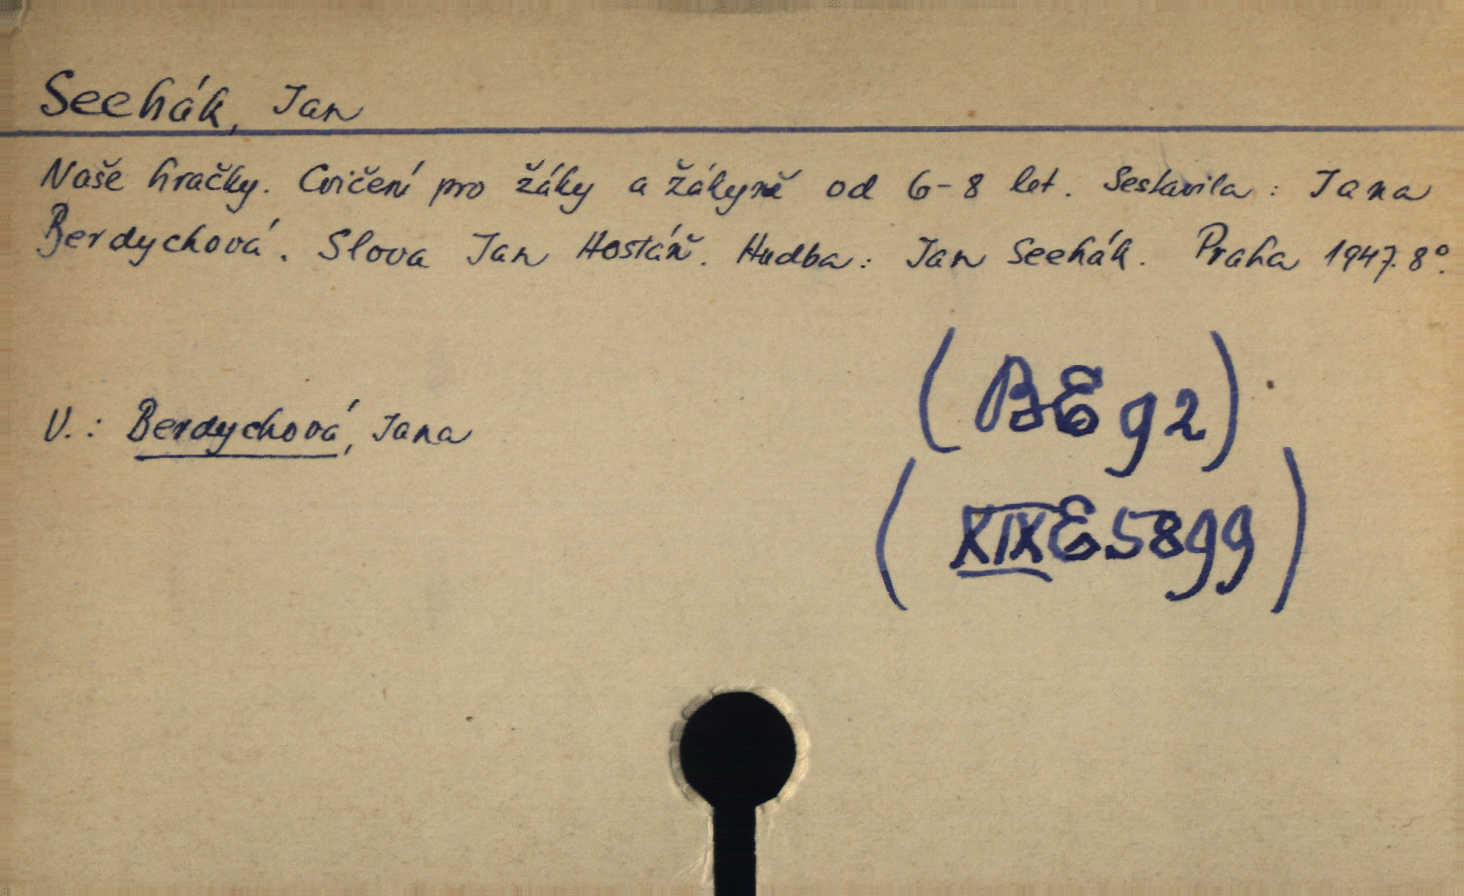 Seehák, Jan
Naše hračky. Cvičení pro žáky a žákyně od 6-8 let. Sestavila: Jana
Berdychová. Slova Jan Hostáň. Hudba: Jan Seehák. Praha 1947. 8°.
(BE 92)
V.: Berdychová, Jana
(XIX E 5899)